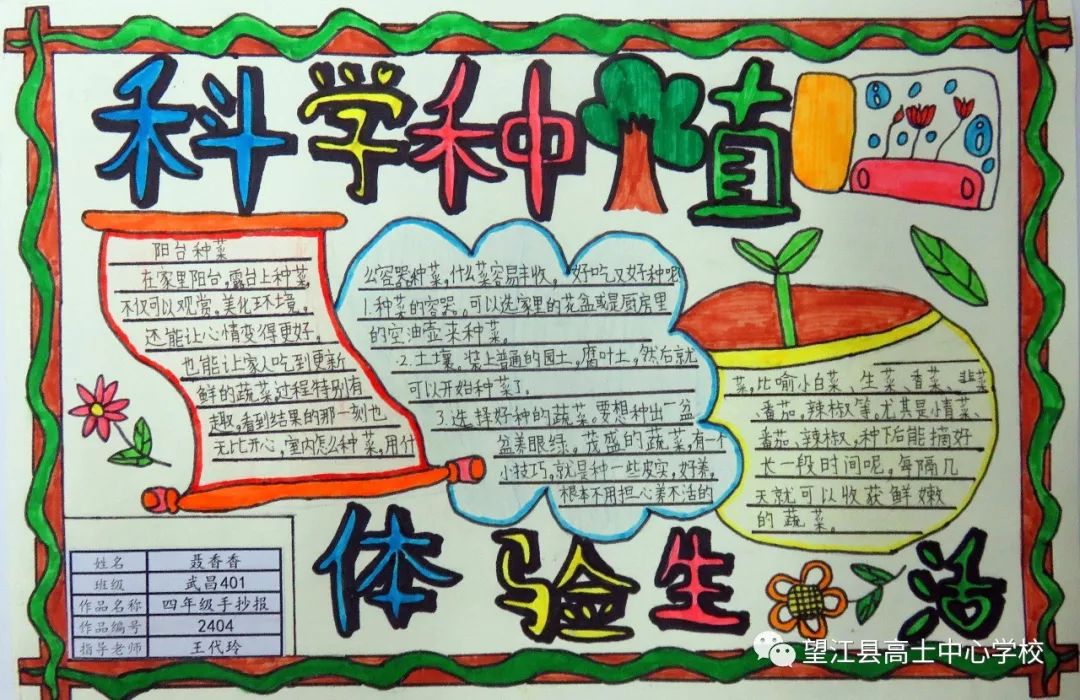 科学种植
阳台种菜
在家里阳台,露台上种菜,
不仅可以观赏。美化环境。
还能让心情变得更好。
也能让家人吃到更新
鲜的蔬菜,过程特别有
趣,看到结果的那一刻也
无比开心,室内怎么种菜,用什
么容器种菜,什么菜容易丰收,好吃又好种呢
1.种菜的容器。可以选家里的花盆或是厨房里
的空油壶来种菜。
2.土壤。装上普通的园土,腐叶土,然后就
可以开始种菜了。
3.选择好种的蔬菜。要想种出一盆
盆养眼绿。茂盛的蔬菜,有一个
小技巧,就是种一些皮实,好养,
根本不用担心养不活的
菜,比喻小白菜、生菜、香菜、韭菜
、番茄。辣椒等。尤其是情菜、
番茄、辣椒,种下后能摘好
长一段时间呢,每隔几
天就可以收获鲜嫩
的蔬菜。
体验生活
姓名 聂香香
班级 武昌401
作品名称 四年级手抄报
作品编号 2404
指导老师 王代玲
望江县高士中心学校